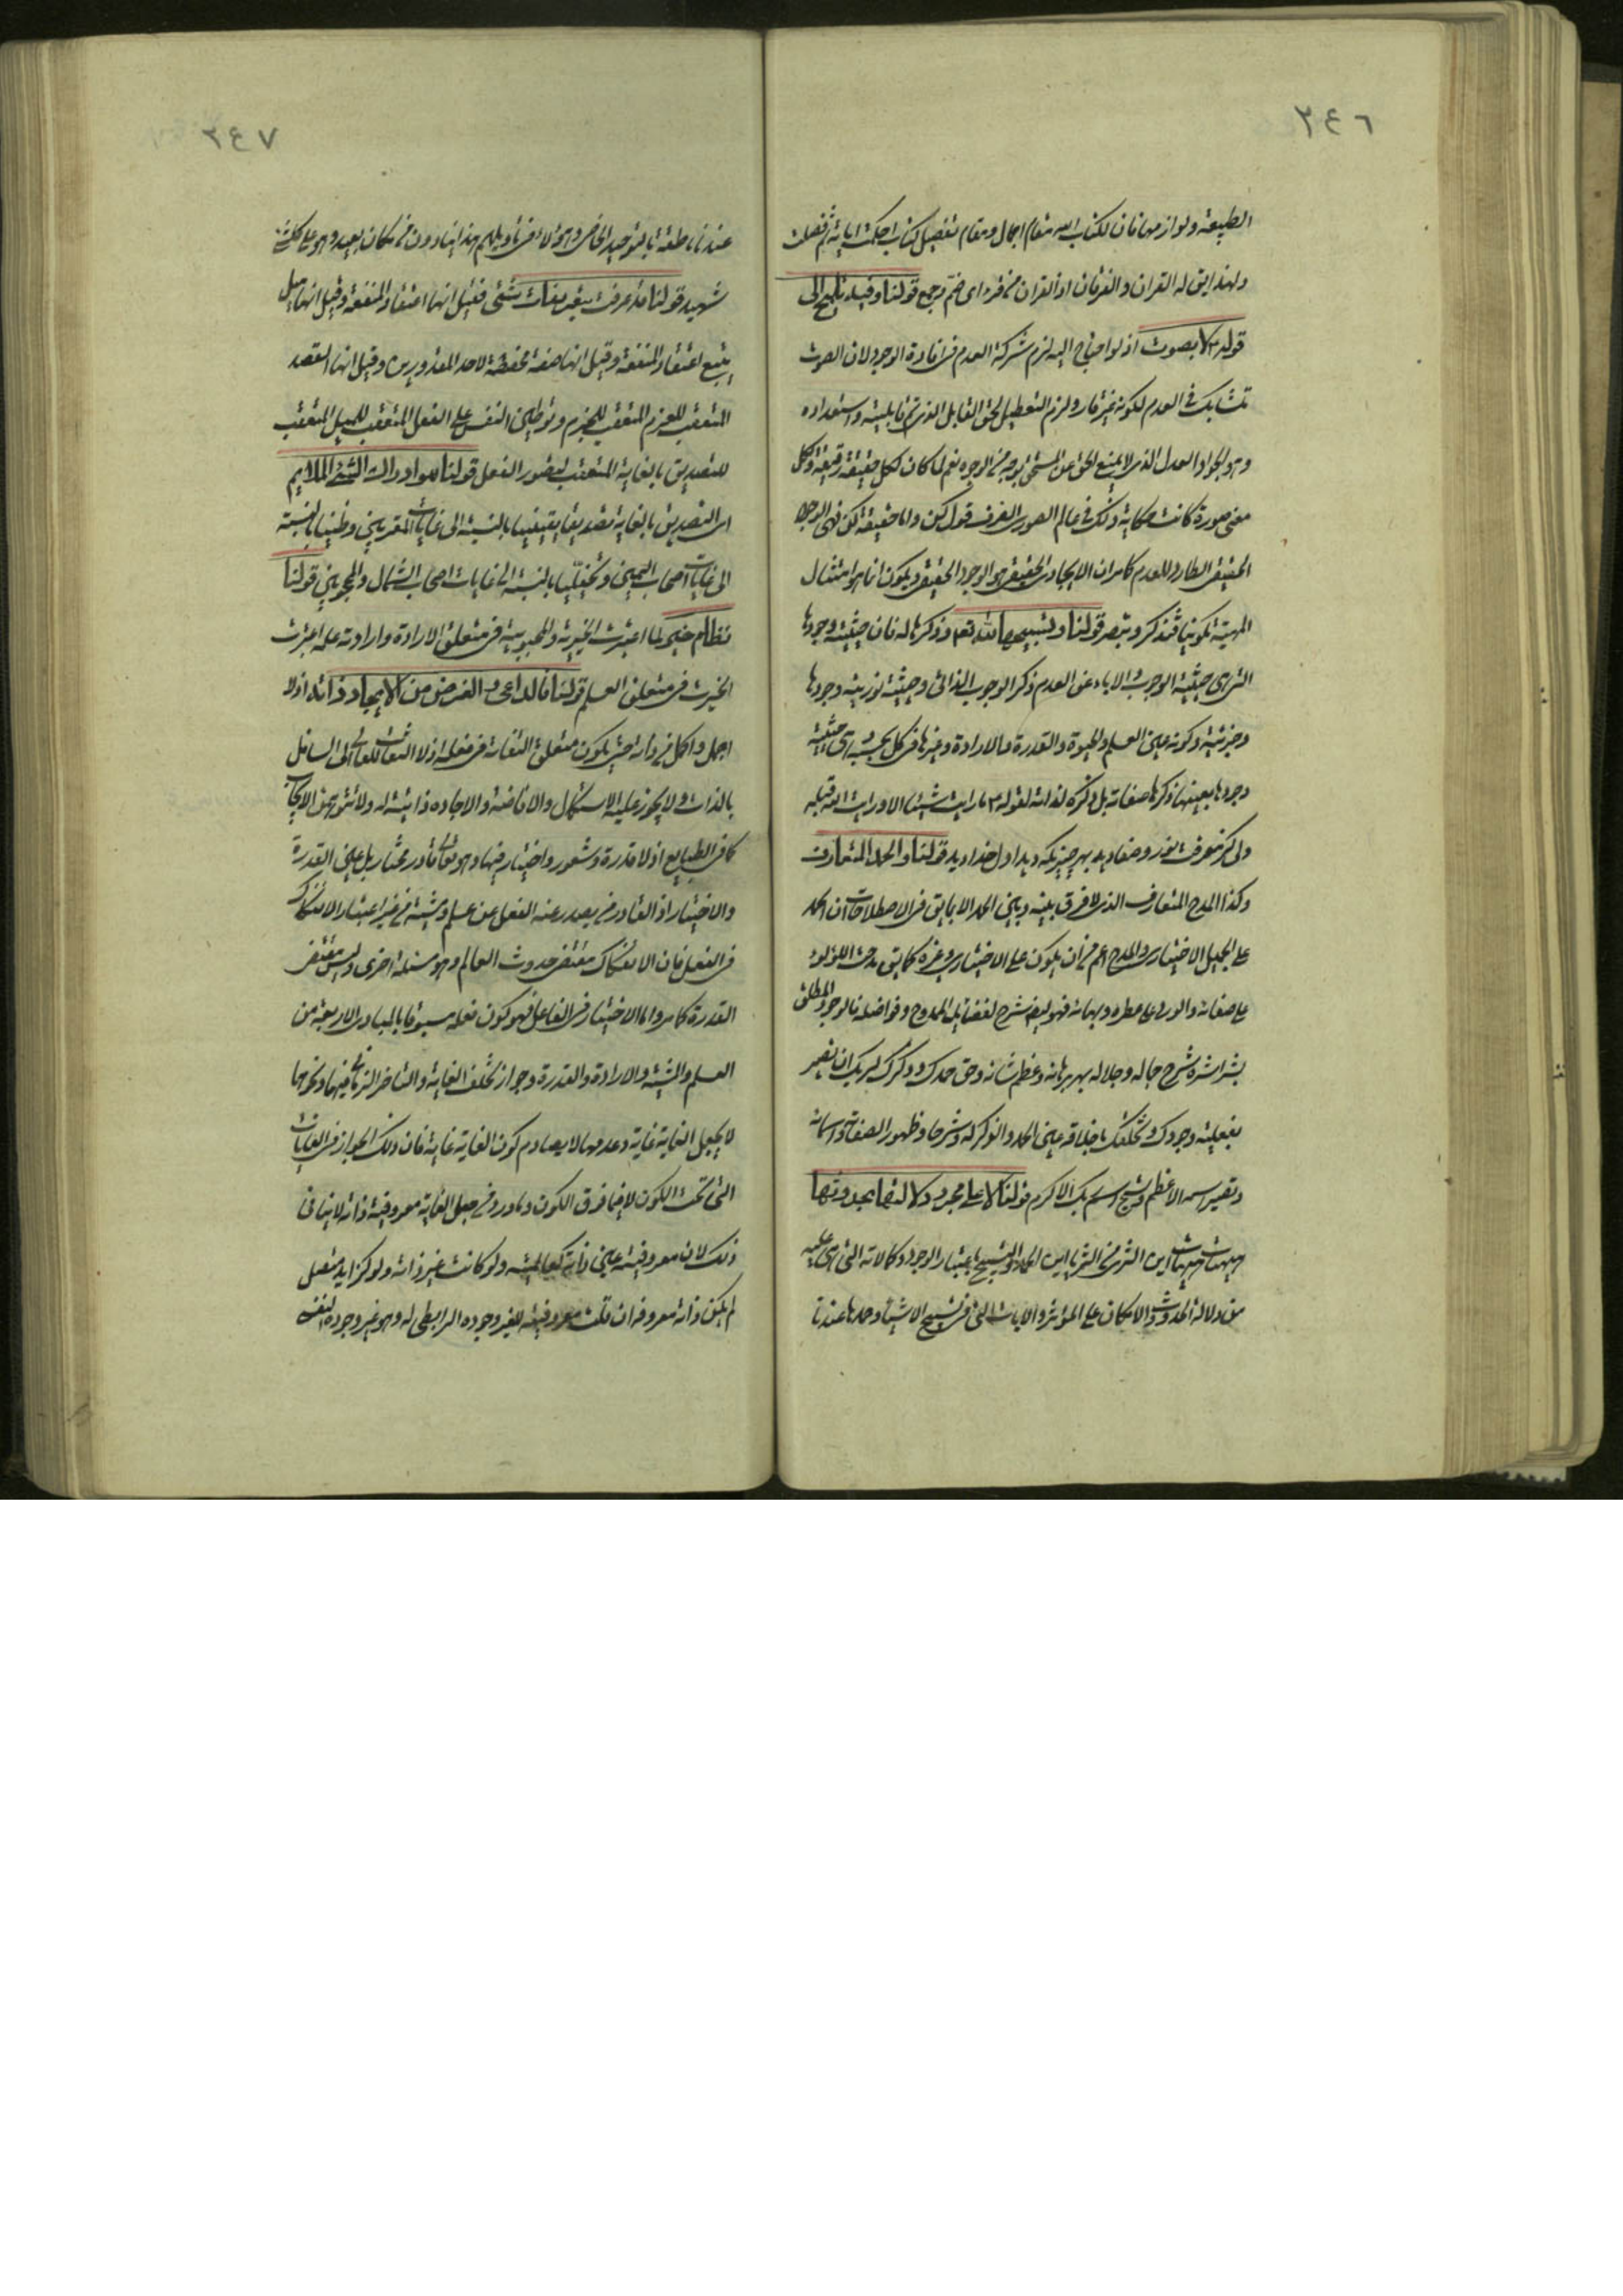 ٢٤٦
الطبيعة ولوازمها فان لكتاب الله مقام اجمال ومقام تفصيل كتاب احكمت اياته ثم فصلت
ولهذا يق له القران والفرقان اذ القران من قرء اى ضم وجمع قولنا وفيه تلميح الى
قوله لا بصوت اذ لو احتاج اليه لزم شركة العدم فى افادة الوجود لان الصوت
تشابك فى العدم لكونه غير قار ولزم التعطيل لحق القابل الذى تم قابليته واستعداده
وهو الجواد العدل الذى لا يمنع الحق عن المستحق بوجه من الوجوه نعم لما كان لكل حقيقة رقيقة ولكل
معنى صورة كانت حكاية ذلك فى عالم الصور الصرف قول كن واما حقيقة كن فهى الوجود
الحقيقى الطارد للعدم كما مر ان الايجاد الحقيقى هو الوجود الحقيقى ويكون انما هو امتثال
المهية تكوينا فتذكر وتبصر قولنا وتسبيحها لله تعم وذكرها له فان حيثية وجودها
التى هى حيثية الوجوب والاباء عن العدم ذكر الوجوب الذاتى وحيثية نورية وجودها
وخيريته وكونه عين العلم والحيوة والقدرة والارادة وغيرها فى كل بحسبه التى هى حيثية
وجودها بعينها ذكرها صفاته بل ذكره لذاته لقوله ما رايت شيئا الا ورايت الله قبله
ولى كز معرفت نور وصفا ديد بهر چيزيكه ديد اول خدا ديد قولنا والحمد المتعارف
وكذا المدح المتعارف الذى لا فرق بينه وبين الحمد الا بما يق فى الاصطلاحات ان الحمد
على الجميل الاختيارى والمدح اعم من ان يكون على الاختيارى وغيره كما يق مدحت اللؤلؤ
على صفائه والورد على عطره وبهائه فهو ليضم شرح لفضائل الممدوح وفواضله فالوجود المطلق
بشراشره شرح جماله وجلاله بهر برهانه وعظم شانه وحق حمدك وذكرك لربك ان تصير
بفعلية وجودك وتخلقك باخلاقه عين الحمد والذكر له وشرحا وظهور الصفاته واسمائه
وتصير اسمه الاعظم وتسبح اسم ربك الاكرم قولنا لا على مجرد دلالتها بحدوثها
هيهات هيهات اين الثرى من الثريا اين الحمد والتسبيح باعتبار الوجود وكمالاته التى هى عليه
من دلالة الحدوث والامكان على المؤثر والايات التى فى تسبيح الاشياء وحمدها عندنا
٢٤٧
عندنا ناطقة بالتوحيد الخاصى وهؤلاء فى تاويلهم هذا ينادون من مكان بعيد وهو على كل شئ
شهيد قولنا قد عرفت بتعريفات شتى فقيل انها اعتقاد المنفعة وقيل انها ميل
يتبع اعتقاد المنفعة وقيل انها صفة مخصصة لاحد المقدورين وقيل انها القصد
المتعقب للعزم المتعقب للجزم وتوطين النفس على الفعل المتعقب للميل المتعقب
للتصديق بالغاية المتعقب لتصور الفعل قولنا هو ادراك الشئ الملايم
اى التصديق بالغاية تصديقا يقينيا بالنسبة الى غايات المقربين وظنيا بالنسبة
الى غايات اصحاب اليمين وتخيليا بالنسبة الى غايات اصحاب الشمال والمحجوبين قولنا
نظام خير لما اعتبرت الخيرية والمحبوبية فى متعلق الارادة وارادته علمه اعتبرت
الخيرية فى متعلق العلم قولنا فالداعى والغرض من الايجاد ذاته اذ لا
اجمل واكمل من ذاته حتى يكون متعلق التفاته فى فعله اذ لا التفات للعالى الى السافل
بالذات ولا يجوز عليه الاستكمال والافاضة والاجاده ذاتية له ولا تتوهمن الايجاب
كما فى الطبايع اذ لا قدرة وشعور واختيار فيها وهو تعالى قادر مختار بل عين القدرة
والاختيار اذ القادر من يصدر عنه الفعل عن علم ومشية من غير اعتبار الانفكاك
فى الفعل فان الانفكاك مقتضى حدوث العالم وهو مسئلة اخرى وليس مقتضى
القدرة كما مر واما الاختيار فى الفاعل فهو كون فعله مسبوقا بالمبادى الاربعة من
العلم والمشية والارادة والقدرة وجواز تخلف الغاية والتاخر الزمانى فيها ونحوهما
لا يجعل الغاية غاية وعدمها لا يصادم كون الغاية غاية فان ذلك الجواز فى الغايات
التى تحت الكون لا فيما فوق الكون وما ورد من جعل الغاية معروفية ذاته لا ينافى
ذلك لان معروفيته عين ذاته كعالميته ولو كانت غير ذاته ولو كزايد متصل
لم يكن ذاته معروفة ان قلت معروفيته للغير وجوده الرابطى له وهو غير وجوده لنفسه